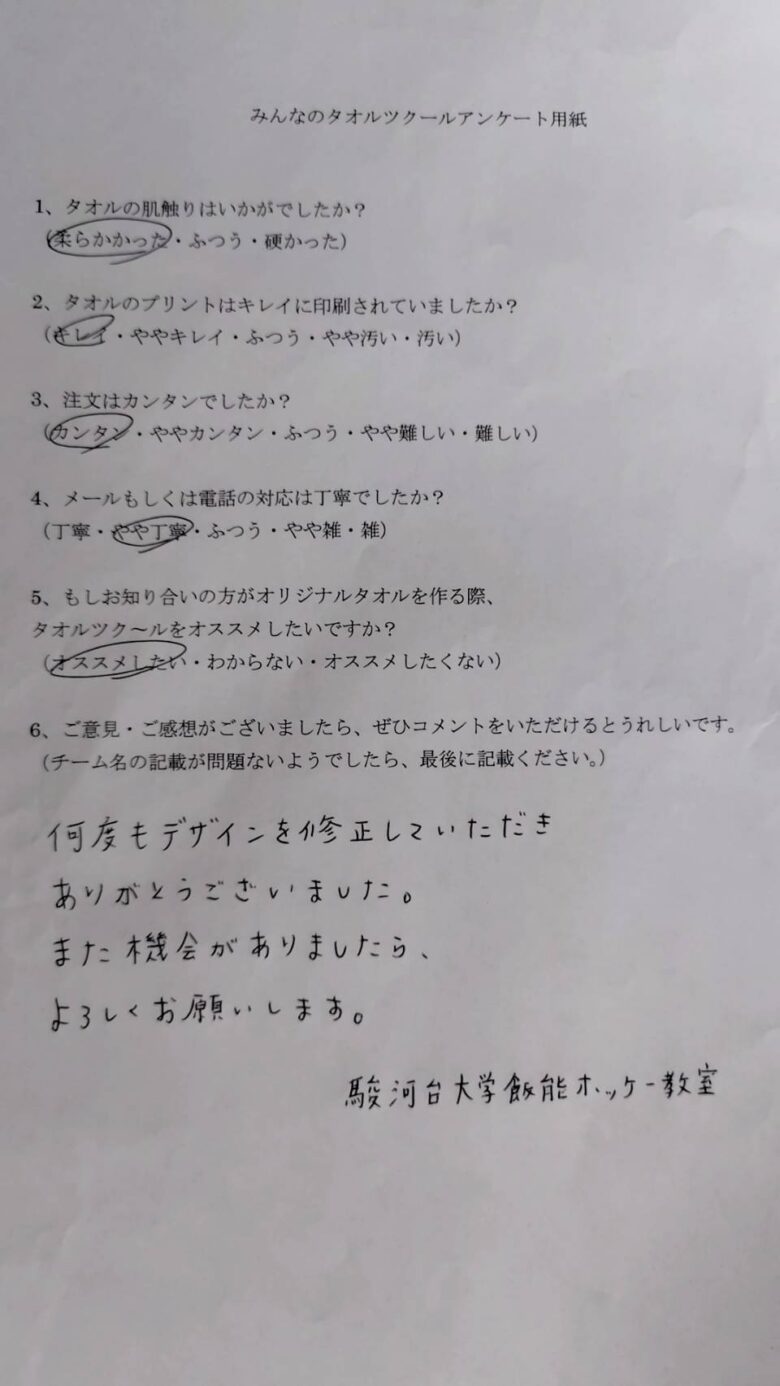 みんなのタオルツクールアンケート用紙
1、タオルの肌触りはいかがでしたか？
（柔らかかった・ふつう・硬かった）
2、タオルのプリントはキレイに印刷されていましたか？
（キレイ・ややキレイ・ふつう・やや汚い・汚い）
3、注文はカンタンでしたか？
（カンタン・ややカンタン・ふつう・やや難しい・難しい）
4、メールもしくは電話の対応は丁寧でしたか？
（丁寧・やや丁寧・ふつう・やや雑・雑）
5、もしお知り合いの方がオリジナルタオルを作る際、
タオルツク〜ルをオススメしたいですか？
（オススメしたい・わからない・オススメしたくない）
6、ご意見・ご感想がございましたら、ぜひコメントをいただけるとうれしいです。
（チーム名の記載が問題ないようでしたら、最後に記載ください。）
何度もデザインを修正していただき
ありがとうございました。
また機会がありましたら、
よろしくお願いします。
駿河台大学飯能ホッケー教室